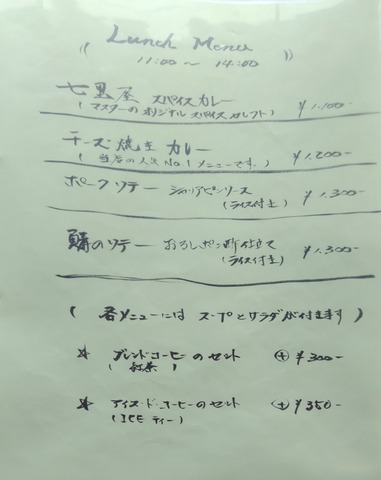 (( Lunch Menu ))
11:00 〜 14:00
七里屋 スパイスカレー
(マスターのオリジナルスパイスカレー) ¥1,100-
チーズ焼きカレー ¥1,200-
(当店の人気No.1メニューです。)
ポークソテー シャリアピンソース ¥1,300-
(ライス付き)
鯖のソテー おろしポン酢仕立て ¥1,300-
(ライス付き)
(各メニューには スープとサラダが付きます)
☆ ブレンドコーヒーのセット ⊕ ¥300-
(紅茶)
☆ アイス・ド・コーヒーのセット ⊕ ¥350-
(ICE ティー)